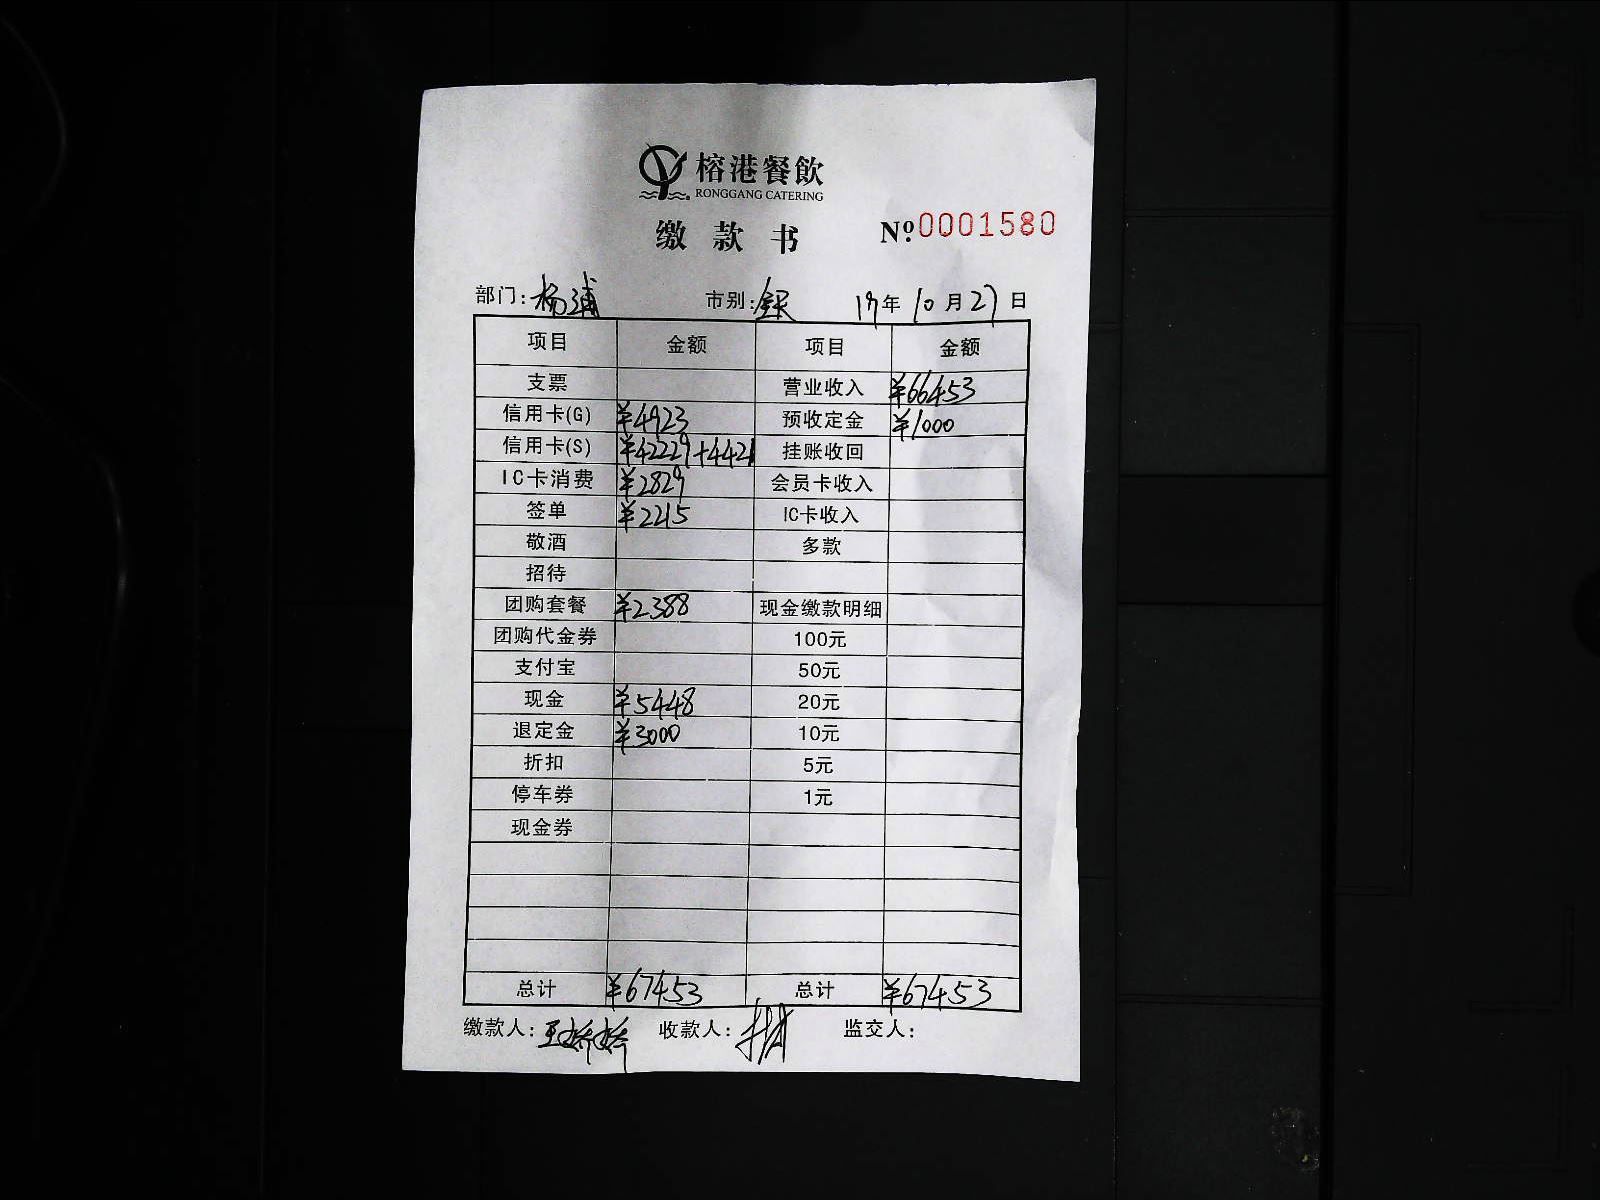 榕港餐飲
RONGGANG CATERING
缴款书 Nº.0001580
部门:杨浦 市别:全天 17年10月27日
项目 金额 项目 金额
支票 营业收入 ¥66453
信用卡(G) ¥4923 预收定金 ¥1000
信用卡(S) ¥42229+4421 挂账收回
IC卡消费 ¥2829 会员卡收入
签单 ¥2215 IC卡收入
敬酒 多款
招待
团购套餐 ¥2388 现金缴款明细
团购代金券 100元
支付宝 50元
现金 ¥5448 20元
退定金 ¥3000 10元
折扣 5元
停车券 1元
现金券
总计 ¥67453 总计 ¥67453
缴款人:王娇娇 收款人: 监交人: